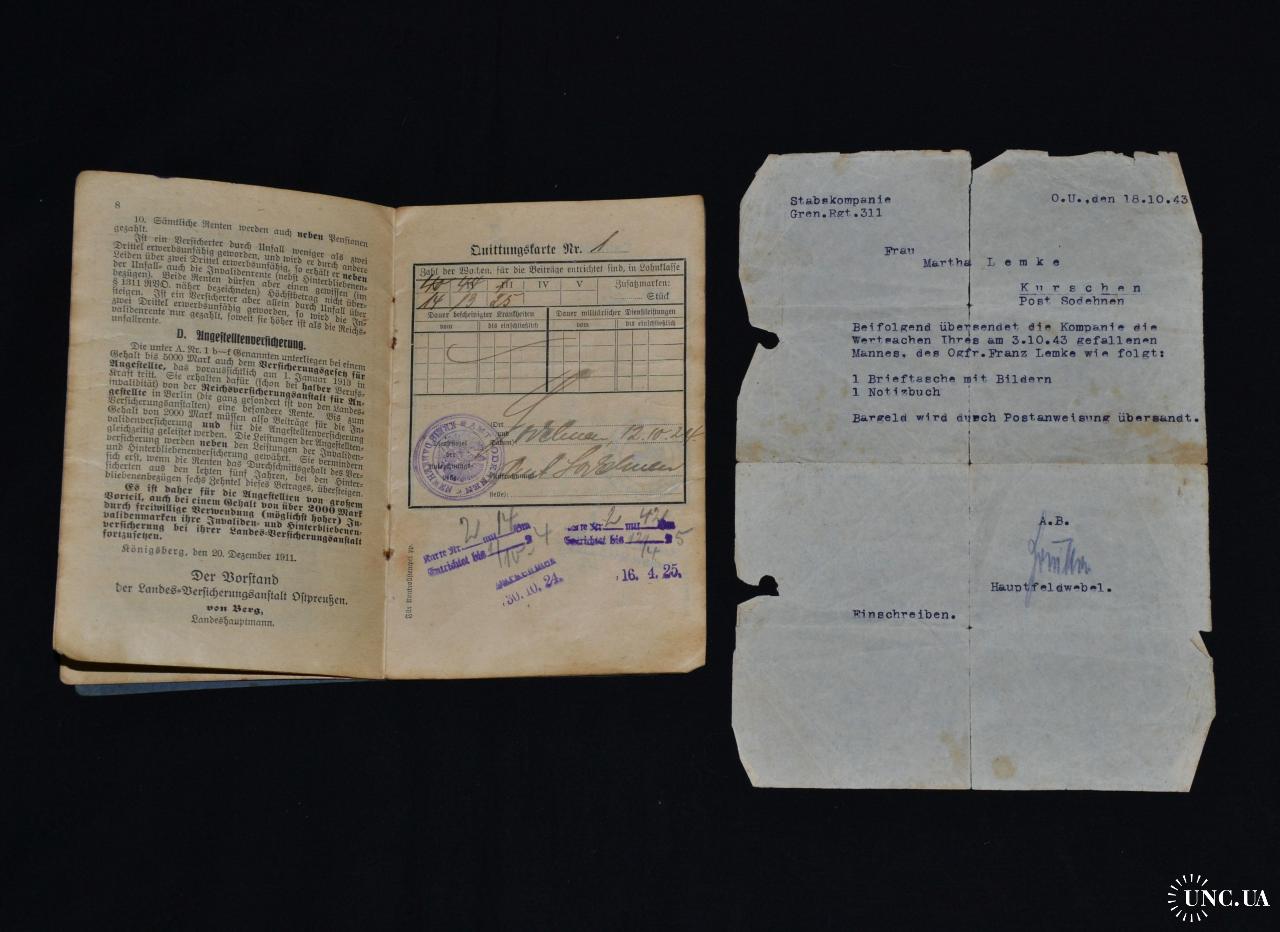 8
10. Sämtliche Renten werden auch neben Pensionen
gezahlt.
Ist ein Versicherter durch Unfall weniger als zwei
Drittel erwerbsunfähig geworden, und wird er durch andere
Leiden über zwei Drittel erwerbsunfähig, so erhält er neben
der Unfall- auch die Invalidenrente (nebst Hinterbliebenen-
bezügen). Beide Renten dürfen aber einen gewissen (im
§ 1311 RVO. näher bezeichneten) Höchstbetrag nicht über-
steigen. Ist ein Versicherter aber allein durch Unfall über
zwei Drittel erwerbsunfähig geworden, so wird die In-
validenrente nur gezahlt, soweit sie höher ist als die Reichs-
unfallrente.
D. Angestelltenversicherung.
Die unter A. Nr. 1 b—f Genannten unterliegen bei einem
Gehalt bis 5000 Mark auch dem Versicherungsgesetz für
Angestellte, das voraussichtlich am 1. Januar 1913 in
Kraft tritt. Sie erhalten dafür (schon bei halber Berufs-
invalidität) von der Reichsversicherungsanstalt für An-
gestellte in Berlin (die ganz gesondert ist von den Landes-
Versicherungsanstalten) eine besondere Rente. Bis zum
Gehalt von 2000 Mark müssen also Beiträge für die In-
validenversicherung und für die Angestelltenversicherung
gleichzeitig geleistet werden. Die Leistungen der Angestellten-
versicherung werden neben den Leistungen der Invaliden-
und Hinterbliebenenversicherung gewährt. Sie vermindern
sich erst, wenn die Renten das Durchschnittsgehalt des Ver-
sicherten aus den letzten fünf Jahren, bei den Hinter-
bliebenenbezügen sechs Zehntel dieses Betrages, übersteigen.
Es ist daher für die Angestellten von großem
Vorteil, auch bei einem Gehalt von über 2000 Mark
durch freiwillige Verwendung (möglichst hoher) In-
validenmarken ihre Invaliden- und Hinterbliebenen-
versicherung bei ihrer Landes-Versicherungsanstalt
fortzusetzen.
Königsberg, den 20. Dezember 1911.
Der Vorstand
der Landes-Versicherungsanstalt Ostpreußen.
von Berg,
Landeshauptmann.
Quittungskarte Nr. 1
Zahl der Wochen, für die Beiträge entrichtet sind, in Lohnklasse
III IV V Zusatzmarken:
14 13 25 Stück
Dauer bescheinigter Krankheiten Dauer militärischer Dienstleistungen
vom bis einschließlich vom bis einschließlich
(Ort und Datum) Sodehnen, 12.10.24
Amt Sodehnen
stelle):
Karte Nr. 2 mit 14 Bm
Entrichtet bis
30.10.24.
Karte Nr. 2 mit 42 Bm
Entrichtet bis
16. 4. 25.
Stabskompanie
Gren.Rgt.311
O.U.,den 18.10.43
Frau
Martha Lemke
Kurschen
Post Sodehnen
Beifolgend übersendet die Kompanie die
Wertsachen Ihres am 3.10.43 gefallenen
Mannes, des Ogfr.Franz Lemke wie folgt:
1 Brieftasche mit Bildern
1 Notizbuch
Bargeld wird durch Postanweisung übersandt.
A.B.
Hauptfeldwebel.
Einschreiben.
UNC.UA